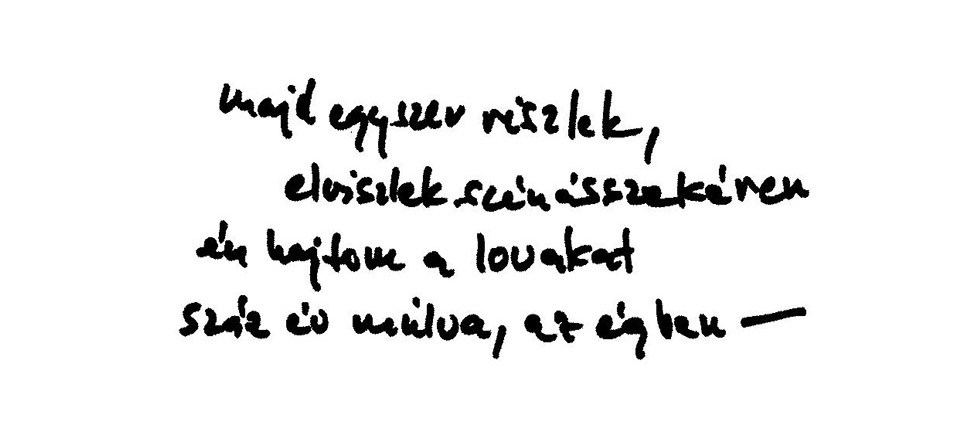 majd egyszer viszlek,
elviszlek szénásszekéren
én hajtom a lovakat
száz év múlva, az égben —